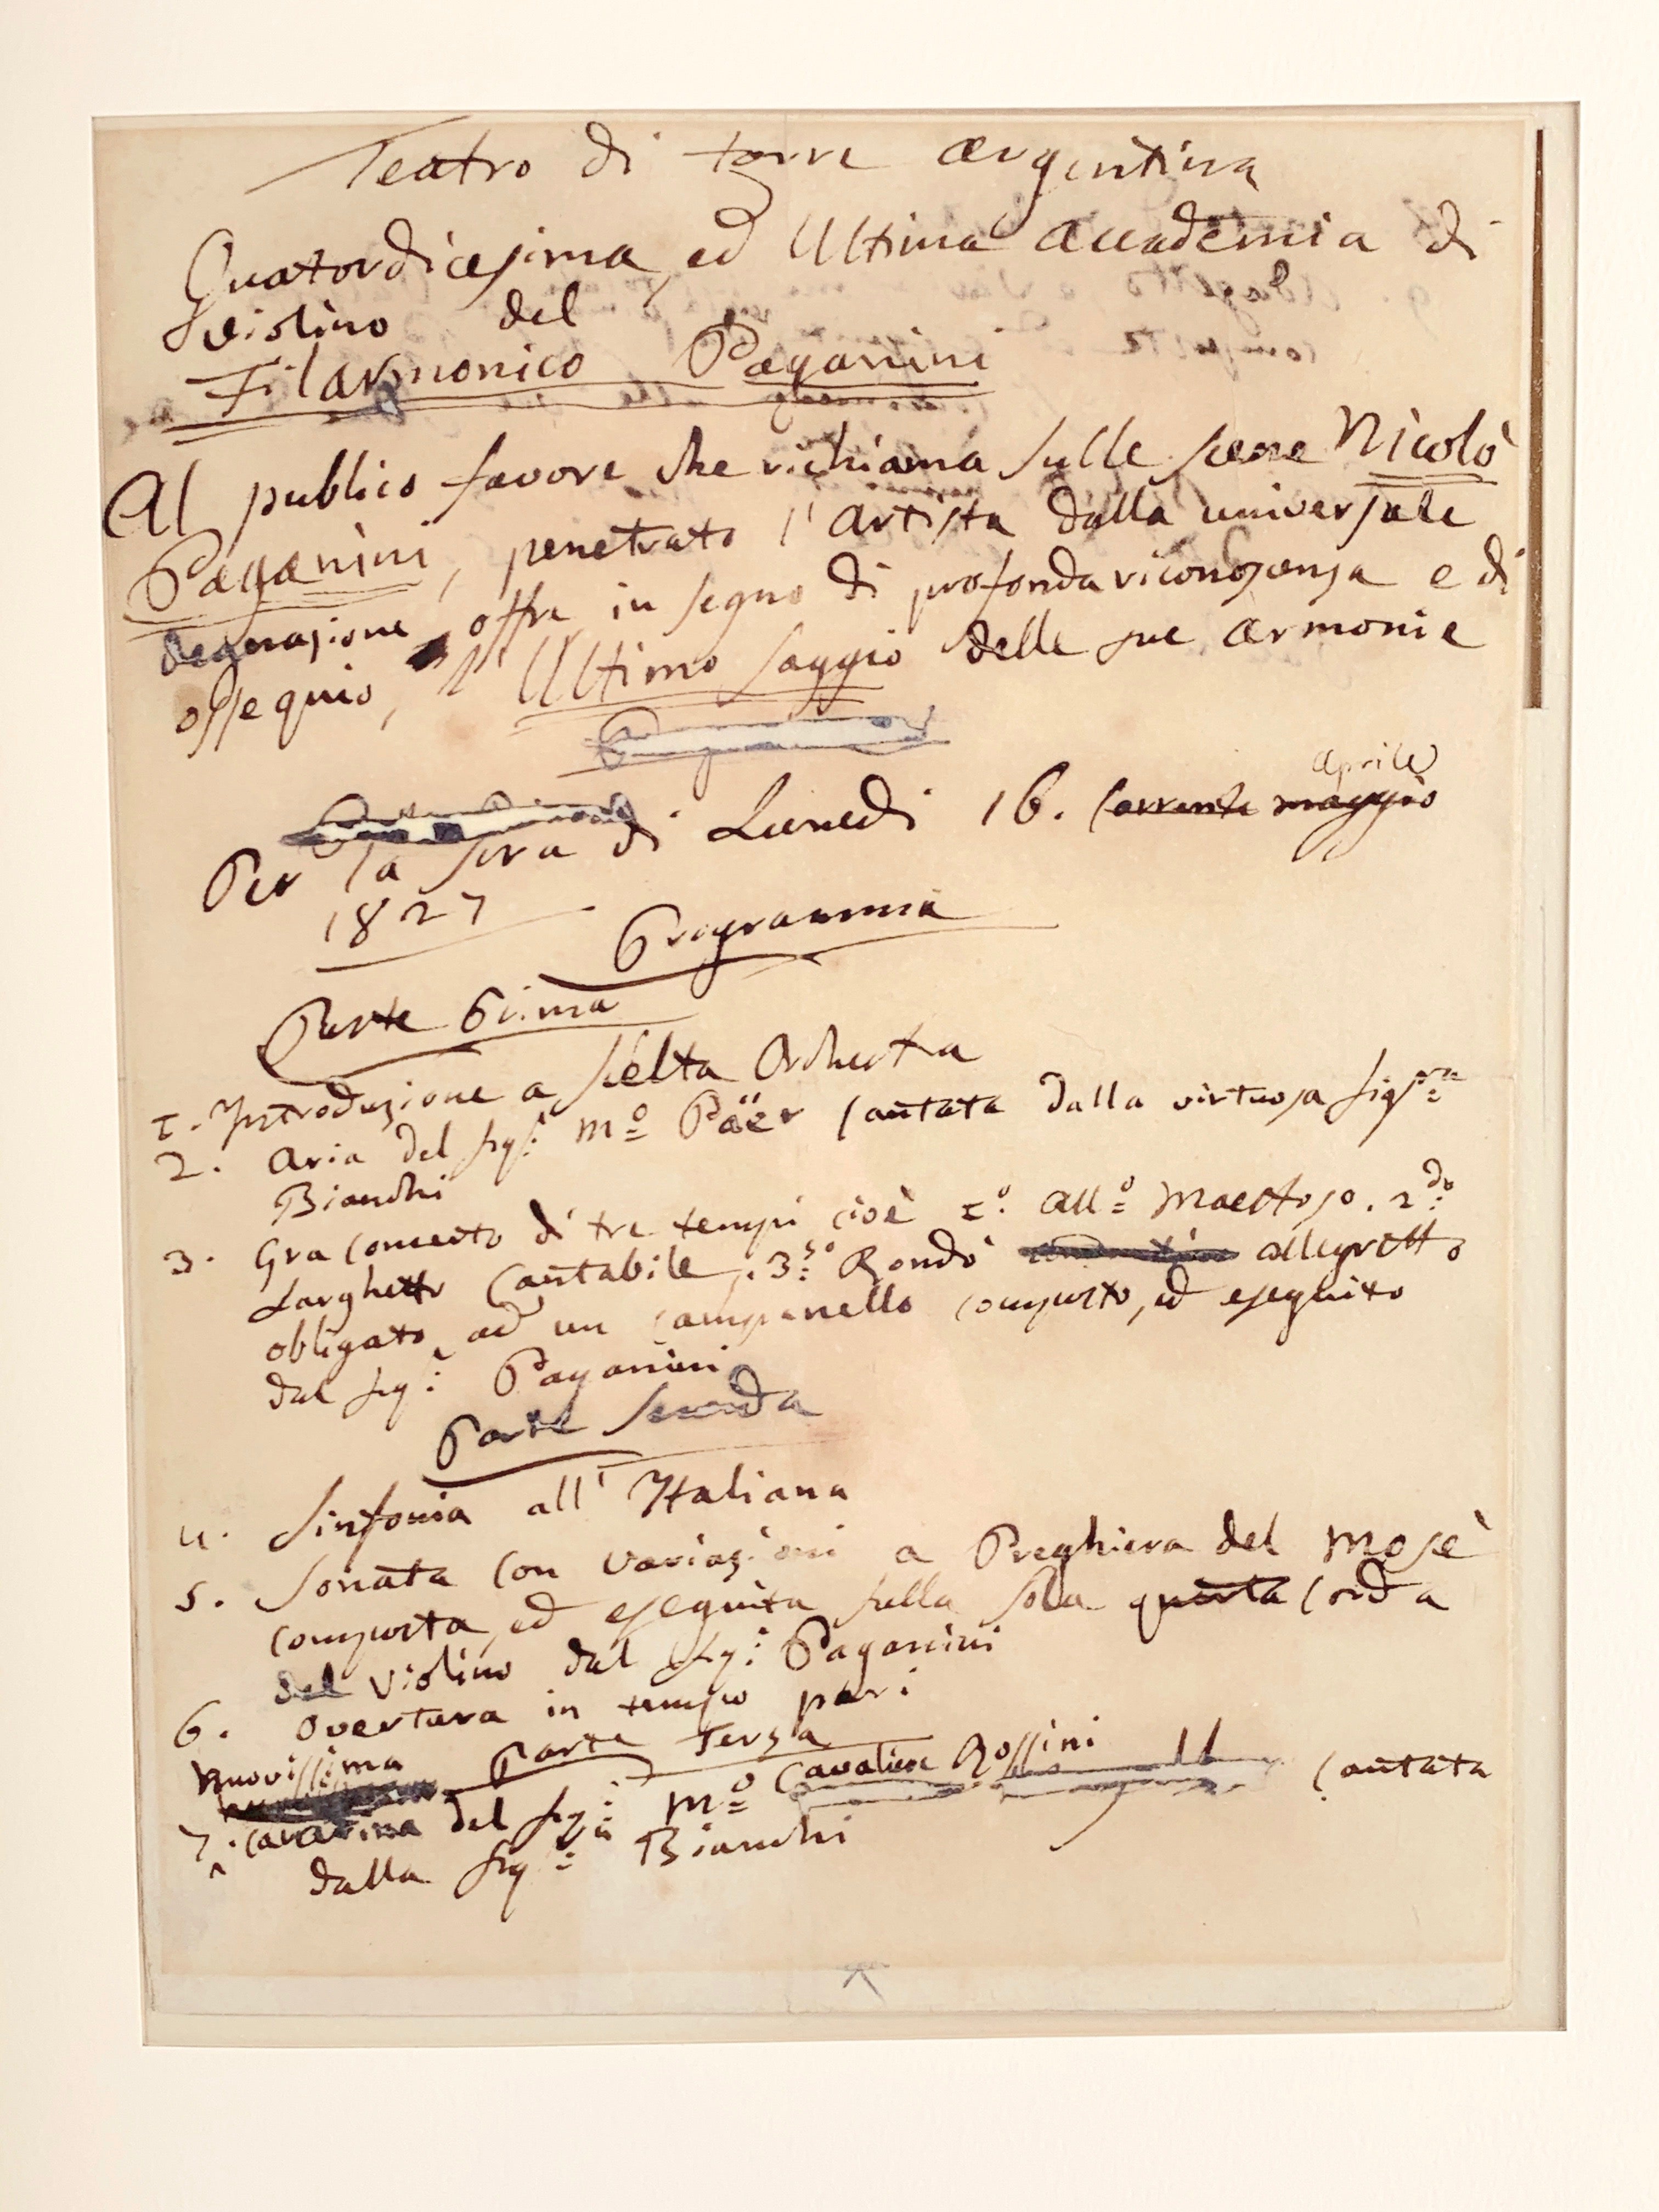 Teatro di torre argentina
Quatordicesima, ed Ultima accademia di
violino del
Filarmonico Paganini
Al publico favore che richiama sulle scene Nicolò
Paganini, penetrato l'artista dalla universale
degnazione, offre in segno di profonda riconoscenza e di
ossequio, l'Ultimo saggio delle sue armonie
Per la sera di Lunedi 16. Corrente maggio aprile
1827
Programma
Parte Prima
I. Introduzione a scelta Orchestra
2. Aria del sigr: Mº Päer Cantata dalla virtuosa sigra
Bianchi
3. Gra Concerto di tre tempi cioè Iº: Allº Maestoso. 2do:
Larghetto Cantabile, .3º: Rondò allegretto
obligato ad un campanello composto, ed eseguito
dal sigr: Paganini
Parte Seconda
4. Sinfonia all'Italiana
5. Sonata Con variazioni a Preghiera del Mosè
composta, ed eseguita sulla sola quarta Corda
del violino dal sigr: Paganini
6. overtura in tempo pari
Parte Terza
Nuovissima
7. Cavatina del sigr: Mº Cavaliere Rossini Cantata
dalla siga: Bianchi